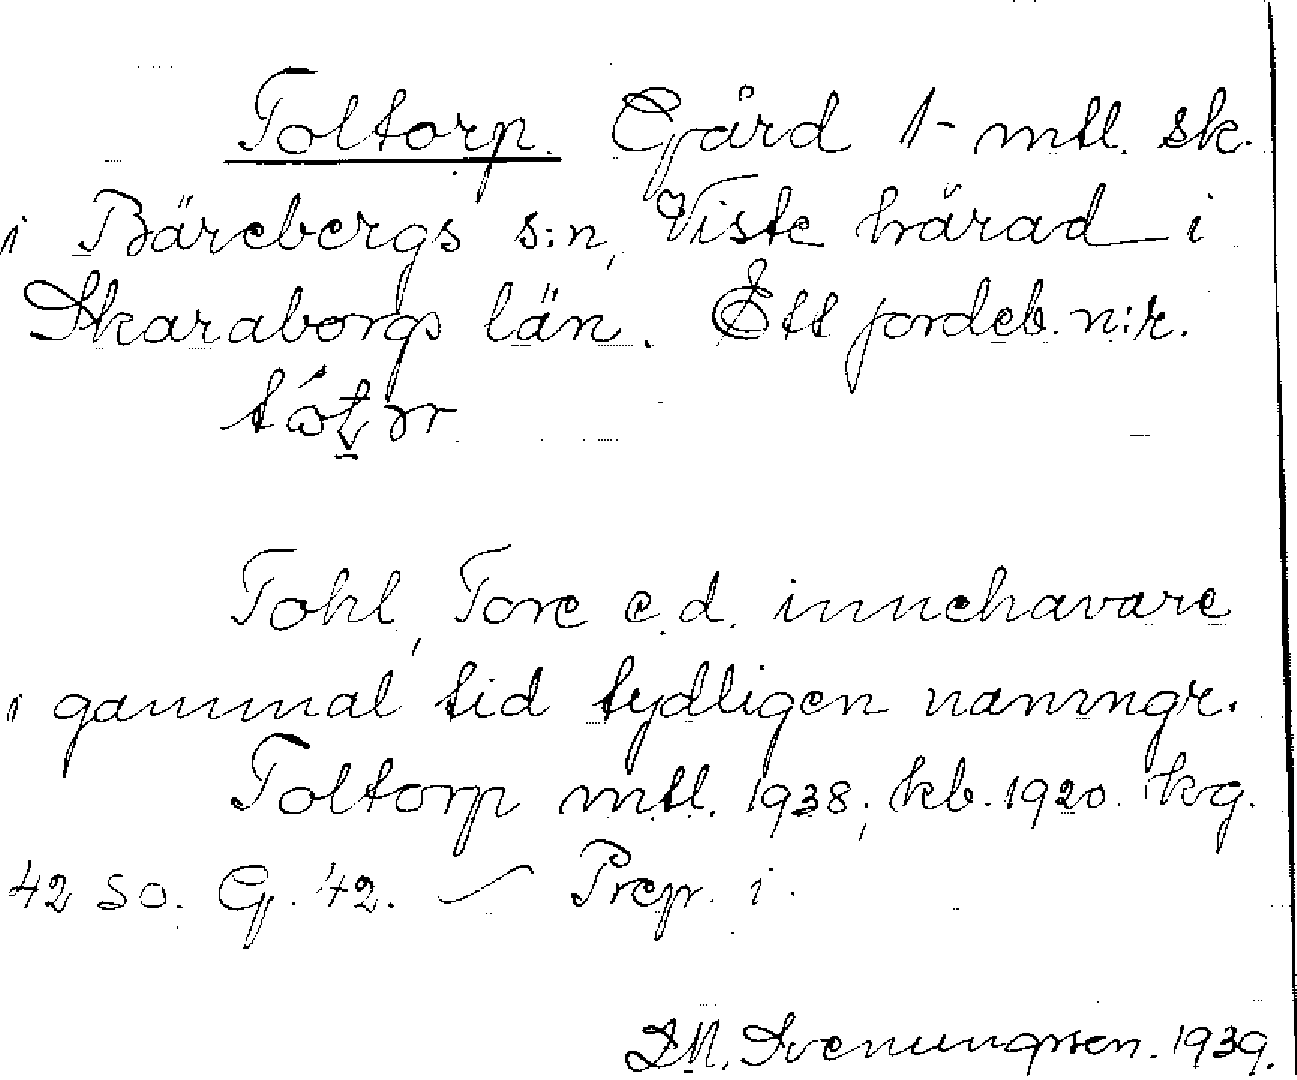 Toltorp. Gård 1- mtl. sk.
i Bärebergs s:n, Viste härad i
Skaraborgs län. Ett jordeb. n:r.
Tohl, Tore e.d. innehavare
i gammal tid tydligen namngr.
Toltorp mtl. 1938; kb. 1920. kg.
42 so. G. 42. — Prep. i.
D.M. Svenungsson. 1939.